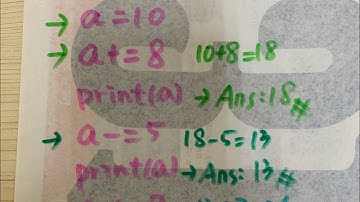 → a=10
→ a+=8 10+8=18
print(a) → Ans:18#
→ a-=5 18-5=13
print(a) → Ans: 13#